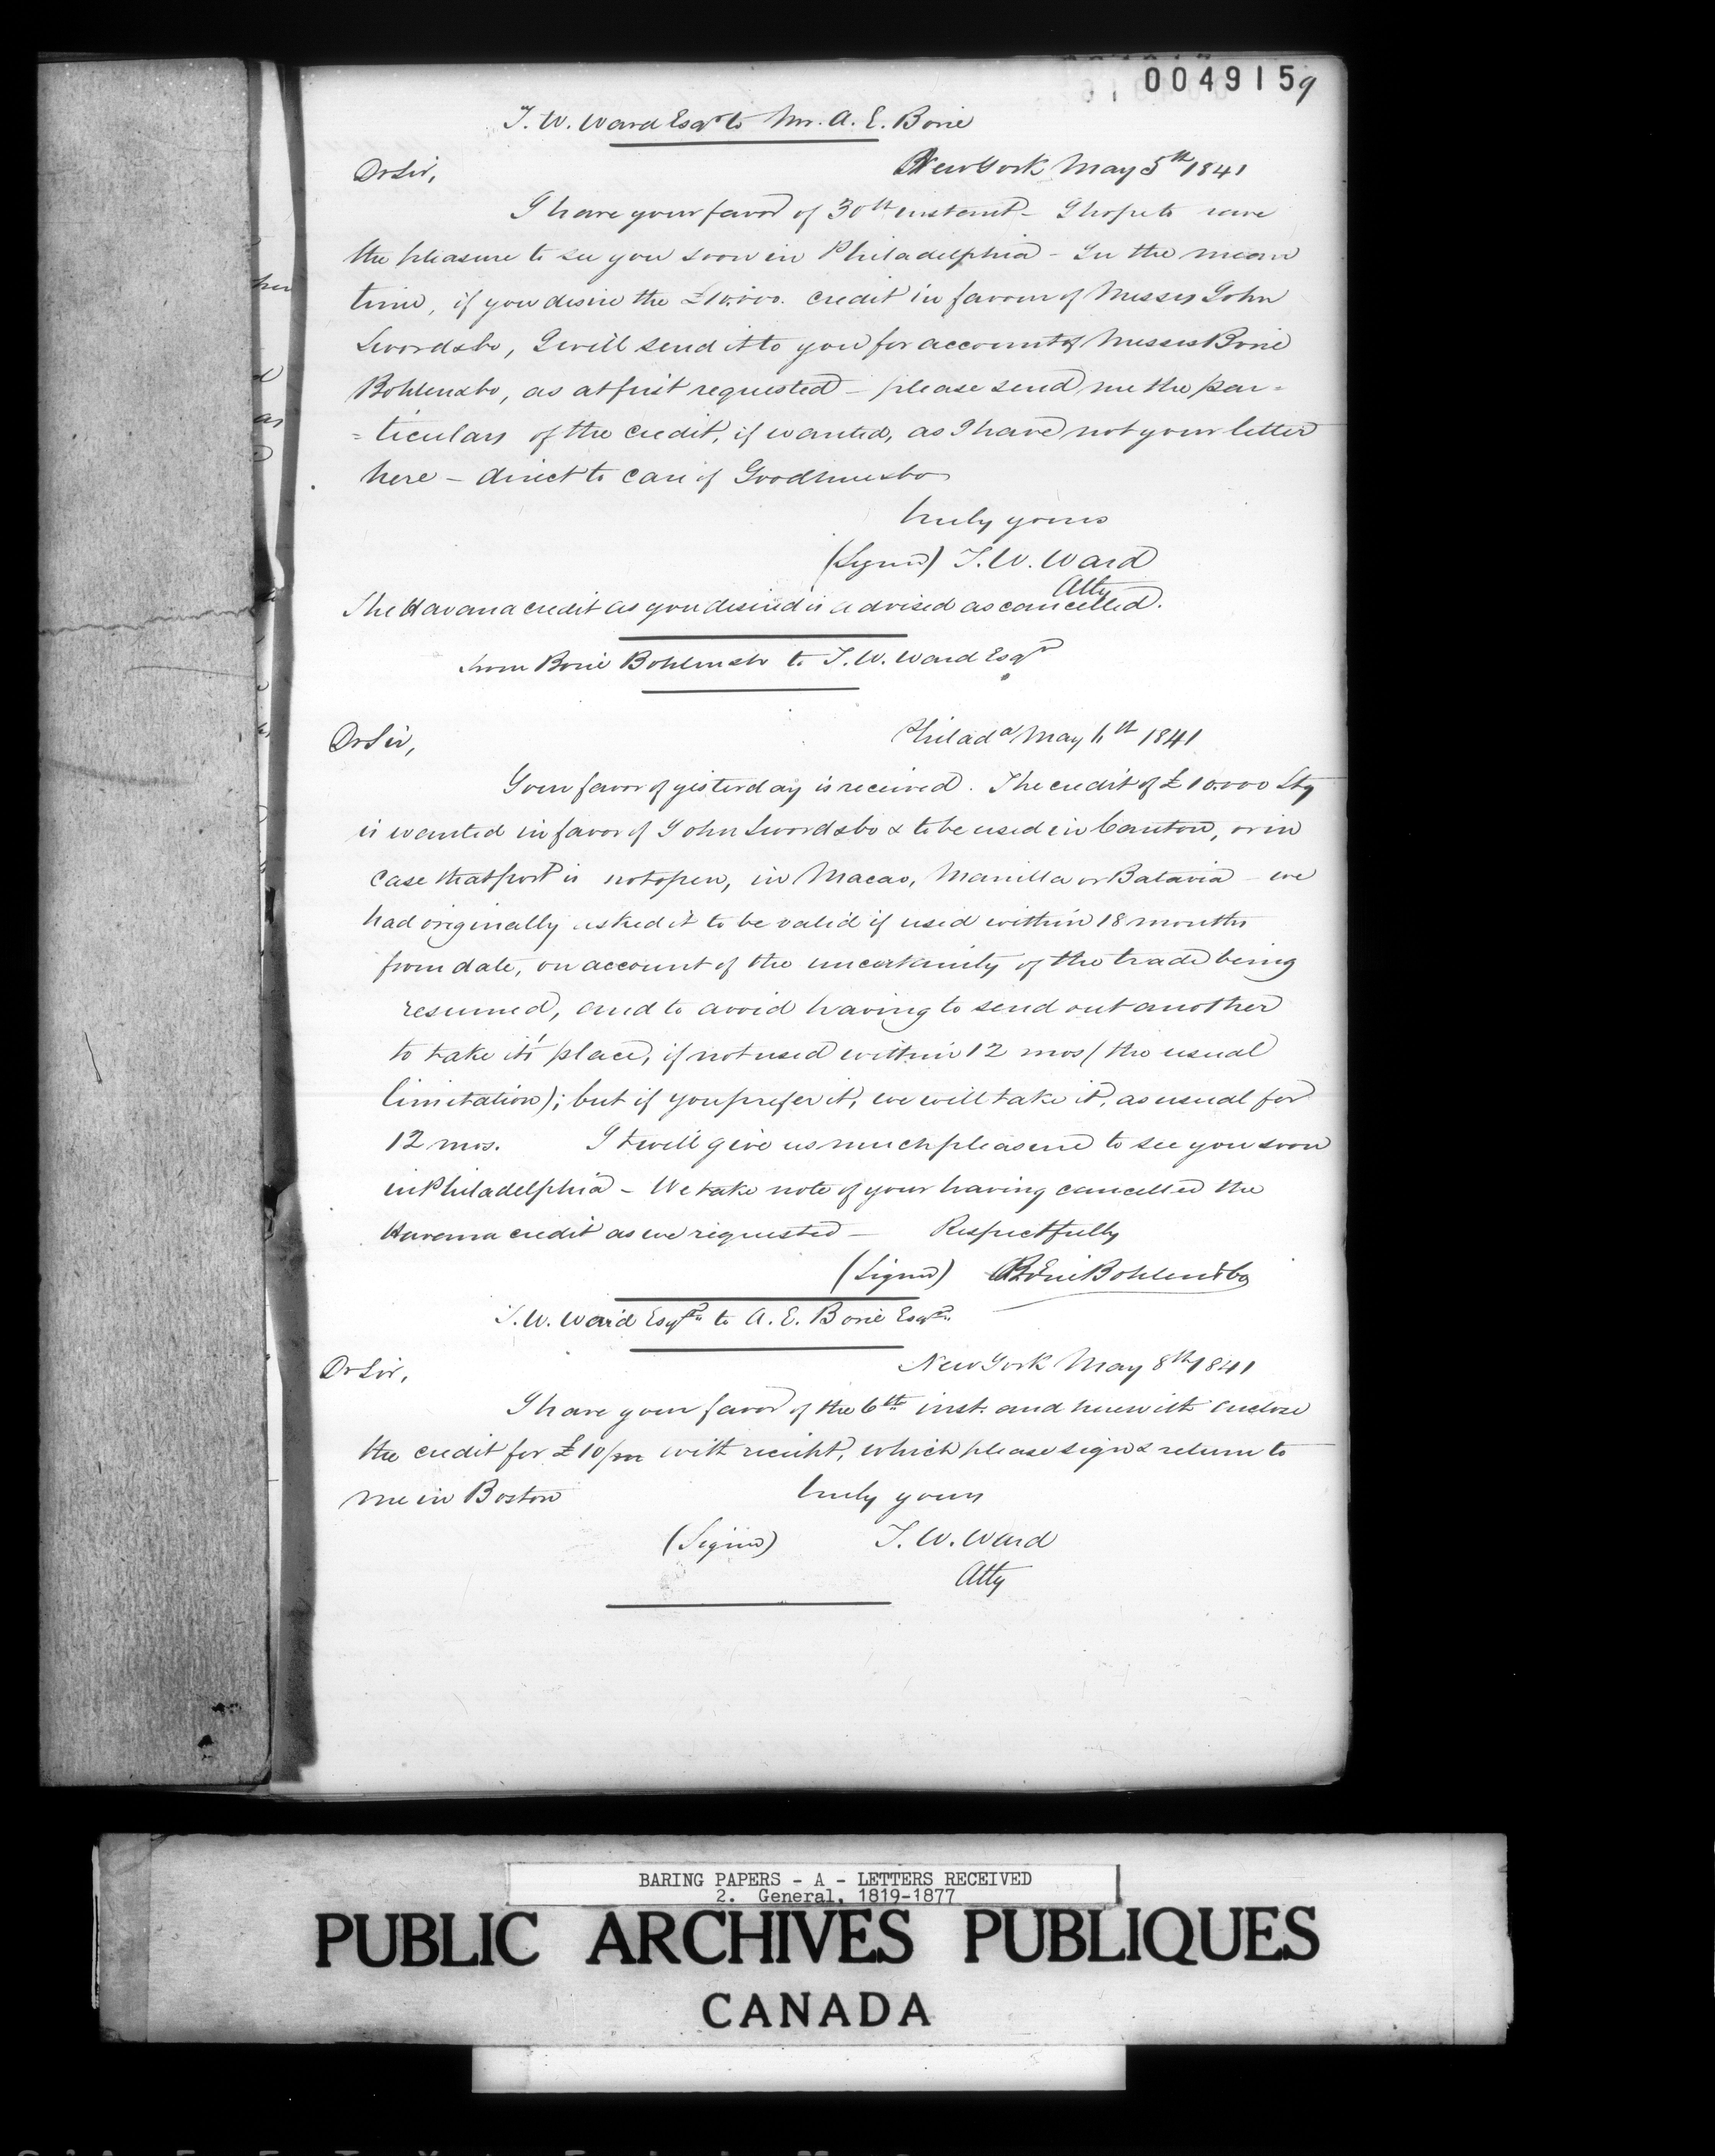 0049159
T. W. Ward Esqr to Mr. A. E. Borie
Dr Sir,
New York May 5th 1841
I have your favor of 30th instant - I hope to have
the pleasure to see you soon in Philadelphia - In the mean
time, if you desire the £10.000. credit in favour of Messrs John
Sword & Co, I will send it to you for account of Messrs Borie
Bohlen & Co, as at first requested - please send me the par=
=ticulars of the credit, if wanted, as I have not your letter
here - direct to care of Goodhue & Co
truly yours
(Signed) T. W. Ward
Atty
The Havana credit as you desired is advised as cancelled.
from Borie Bohlen & Co to T. W. Ward Esqr
Philada May 6th 1841
Dr Sir,
Your favor of yesterday is received. The credit of £10.000 Stg
is wanted in favor of John Sword & Co & to be used in Canton, or in
case that port is not open, in Macao, Manilla or Batavia - we
had originally asked it to be valid if used within 18 months
from date, on account of the uncertainity of the trade being
resumed, and to avoid having to send out another
to take it's place, if not used within 12 mos (the usual
limitation); but if you prefer it, we will take it, as usual for
12 mos. It will give us much pleasure to see you soon
in Philadelphia - We take note of your having cancelled the
Havanna credit as we requested - Respectfully
(Signed) Borie Bohlen & Co
T. W. Ward Esqr to A. E. Borie Esqr
New York May 8th 1841
Dr Sir,
I have your favor of the 6th inst. and herewith enclose
the credit for £10/m with receipt, which please sign & return to
me in Boston truly yours
(Signed) T. W. Ward
Atty
BARING PAPERS - A - LETTERS RECEIVED
2. General, 1819-1877
PUBLIC ARCHIVES PUBLIQUES
CANADA